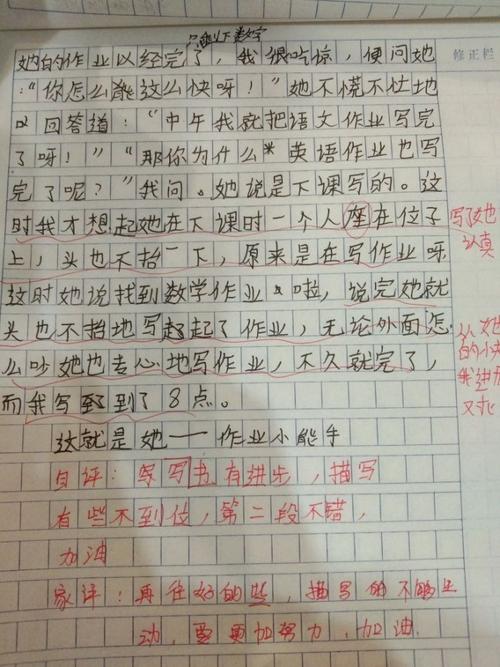 只剩下数字
她的作业以经完了，我很吃惊，便问她
修正栏
：“你怎么能这么快呀！”她不慌不忙地
回答道：“中午我就把语文作业写完
了呀！”“那你为什么英语作业也写
完了呢？”我问。她说是下课写的。这
时我才想起她在下课时一个人座在位子
写了她
认真
上，头也不抬一下，原来是在写作业呀
这时她说找到数学作业啦，说完她就
头也不抬地写起了作业，无论外面怎
从她
的小
么吵她也专心地写作业，不久就完了，
而我写到到了8点。
又寸比
这就是她——作业小能手
自评：写书有进步，描写
有些不到位，第二段不错，
加油
家评：再往好的些，描写的不够生
动，要更加努力，加油.